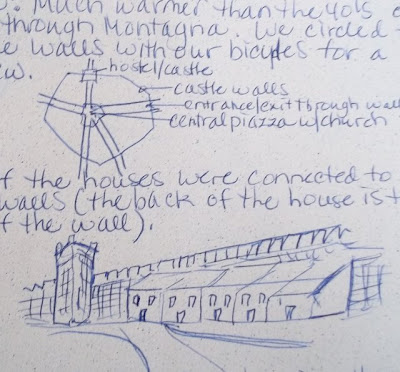 Much warmer than the 40's
through Montagna. We circled
walls with our bicycles for a
hostel/castle
castle walls
entrance/exit through wall
central piazza w/church
f the houses were connected to
walls (the back of the house is t
f the wall).